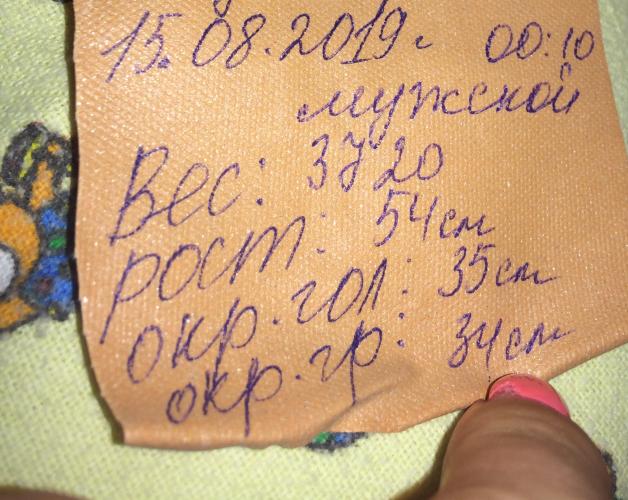 15.08.2019г. 00:10
мужской
Вес: 3720
рост: 54см
окр.гол: 35см
окр.гр: 34см